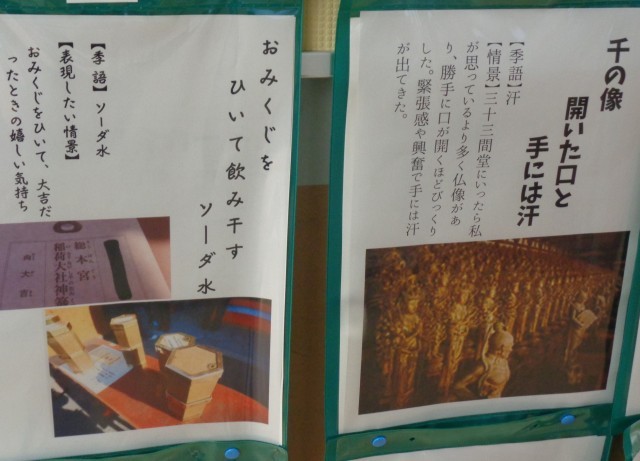 千の像
開いた口と
手には汗
【季語】汗
【情景】三十三間堂にいったら私
が思っているより多く仏像があ
り、勝手に口が開くほどびっくり
した。緊張感や興奮で手には汗
が出てきた。
おみくじを
ひいて飲み干す
ソーダ水
【季語】ソーダ水
【表現したい情景】
おみくじをひいて、大吉だ
ったときの嬉しい気持ち
総本宮
稲荷大社神籤
大吉